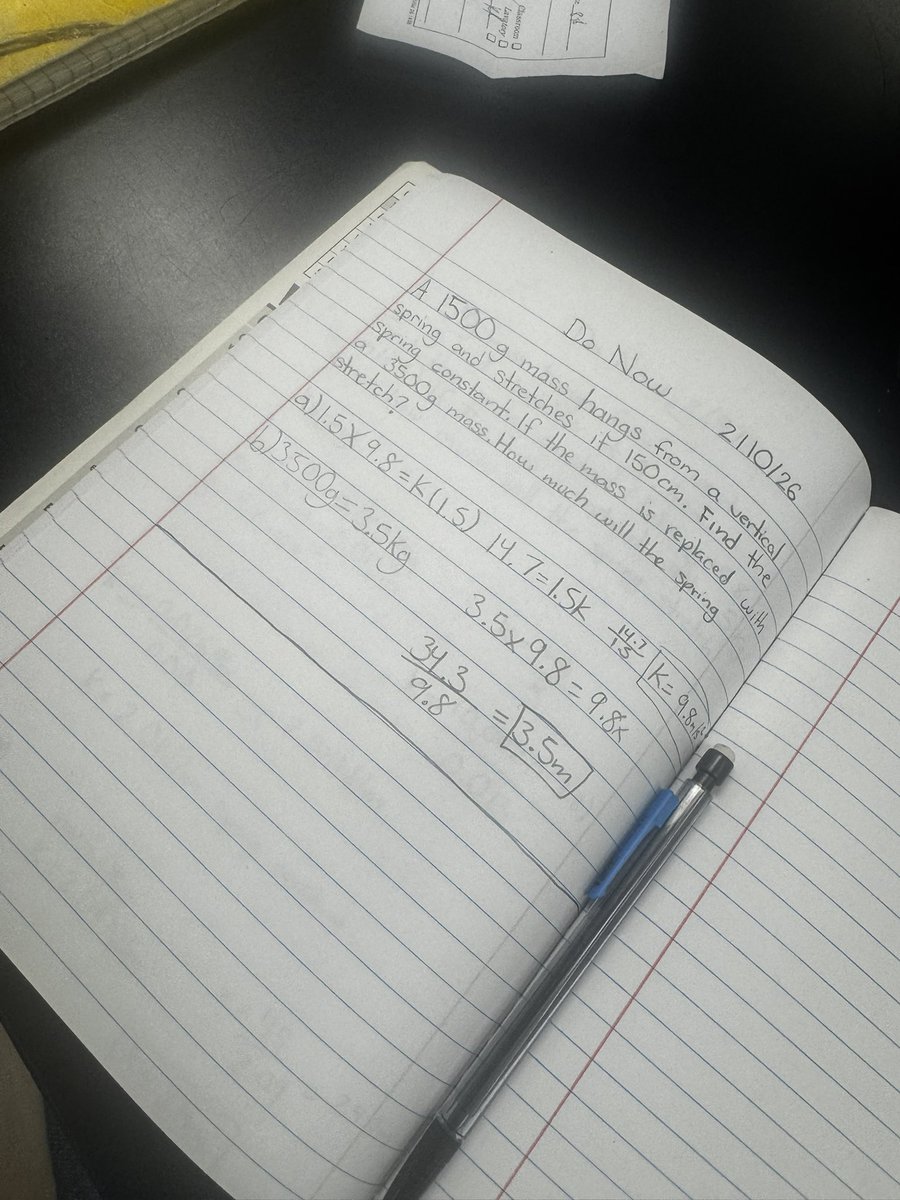 Classroom
Lavatory
Do Now 2/10/26
A 1500g mass hangs from a vertical
spring and stretches it 150cm. Find the
spring constant. If the mass is replaced with
a 3500g mass. How much will the spring
stretch?
a) 1.5 x 9.8 = K(1.5) 14.7 = 1.5K 14.7/1.5 K = 9.8m/s²
b) 3500g = 3.5Kg 3.5 x 9.8 = 9.8x
34.3/9.8 = 3.5m